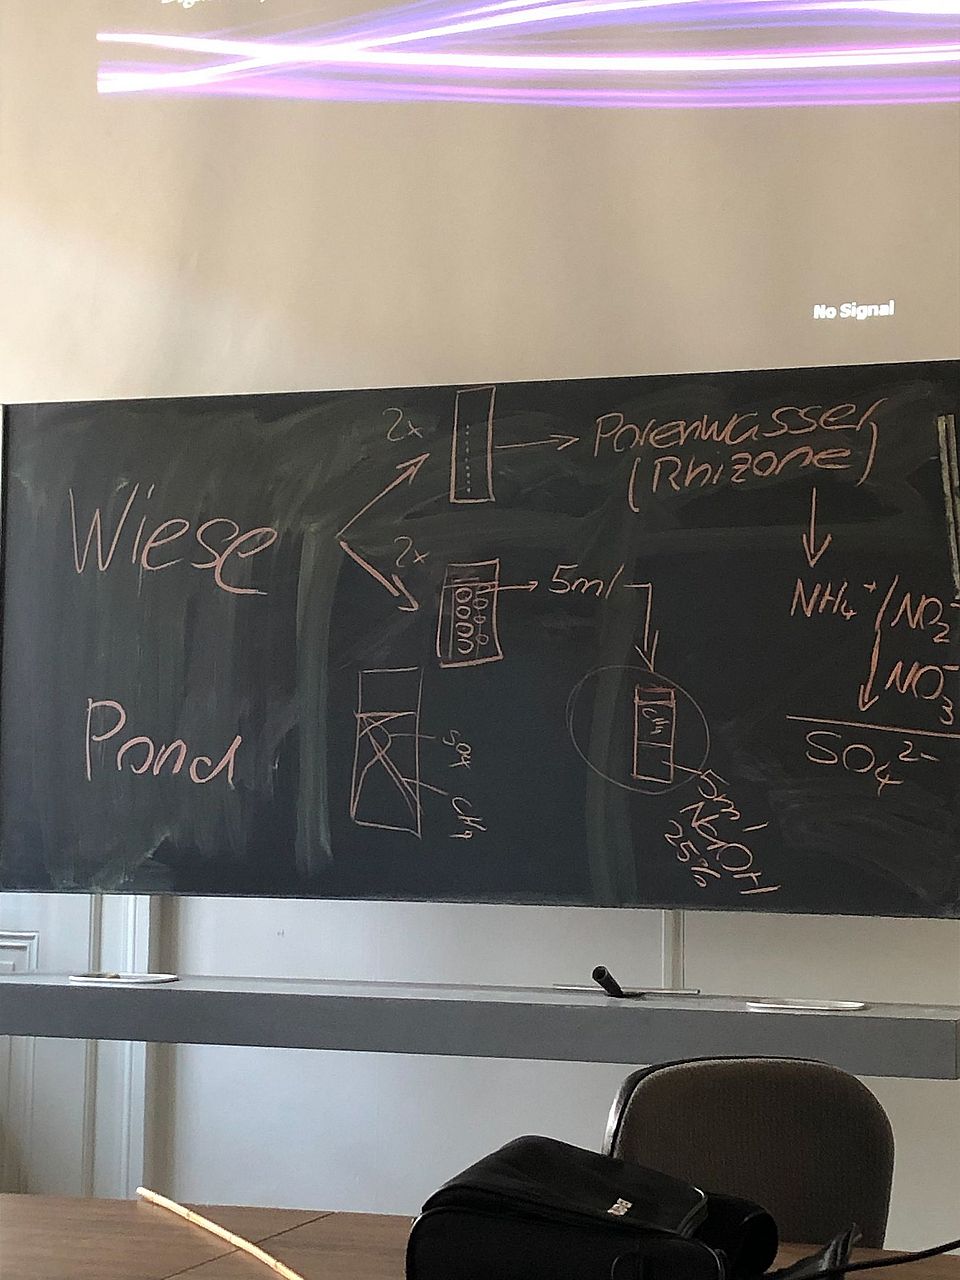 No Signal
2x
Porenwasser
(Rhizone)
Wiese
2x
5ml
NH₄⁺/NO₂⁻
NO₃⁻
SO₄²⁻
Pond
SO4
CH4
CH4
5ml
NaOH
25%